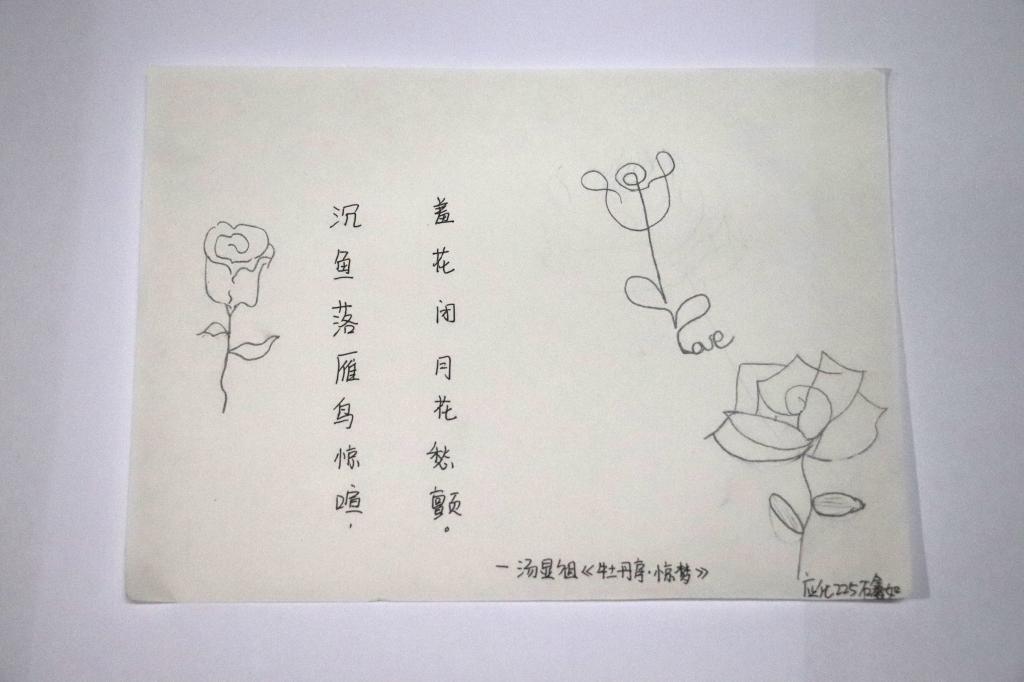 沉鱼落雁鸟惊喧，
羞花闭月花愁颤。
一汤显祖《牡丹亭·惊梦》
Love
应化225石鑫如